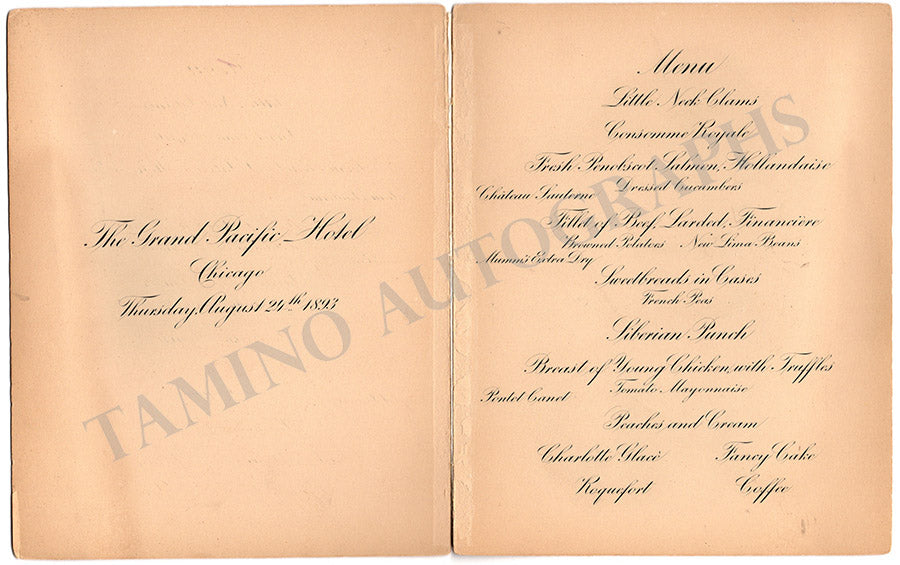 The Grand Pacific Hotel
Chicago
Thursday, August 24th 1893
Menu
Little Neck Clams
Consomme Royale
Fresh Penobscot Salmon, Hollandaise
Château Sauterne Dressed Cucumbers
Fillet of Beef, Larded, Financière
Browned Potatoes New Lima Beans
Mumm's Extra Dry
Sweetbreads in Cases
French Peas
Siberian Punch
Breast of Young Chicken, with Truffles
Pontet Canet Tomato Mayonnaise
Peaches and Cream
Charlotte Glacé Fancy Cake
Roquefort Coffee
TAMINO AUTOGRAPHS